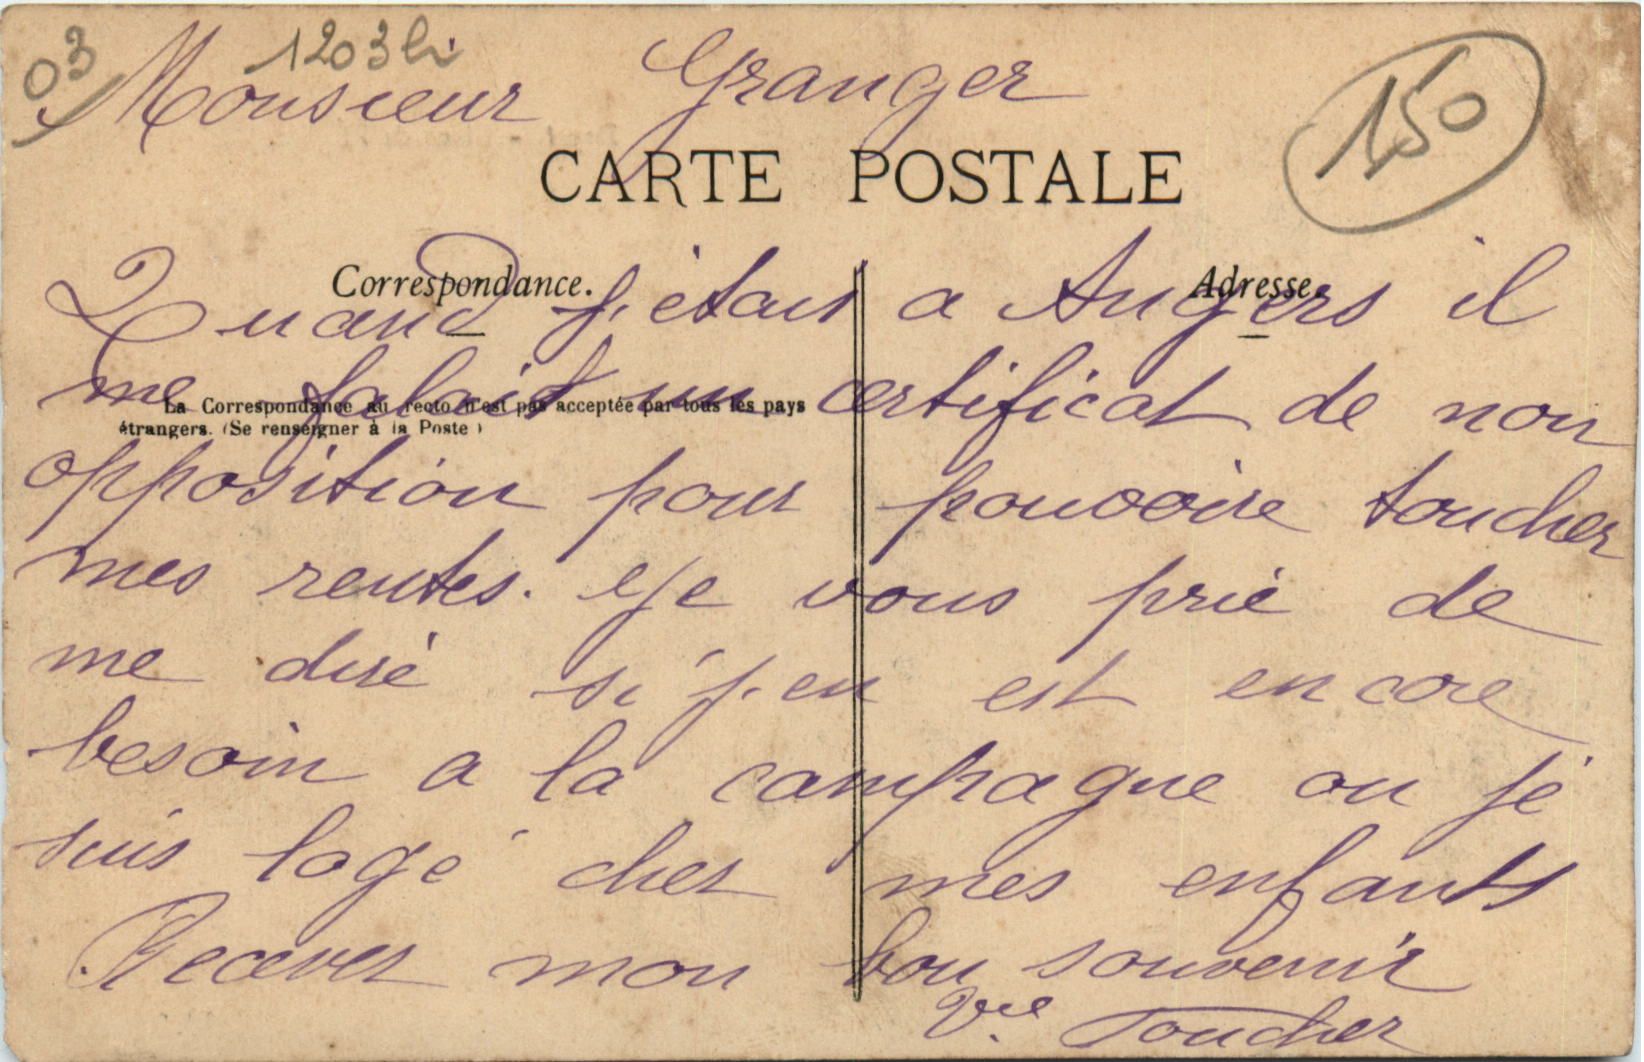 03
1203 bi
150
Monsieur Granger
CARTE POSTALE
Correspondance.
Adresse.
La Correspondance au recto n'est pas acceptée par tous les pays
étrangers. (Se renseigner à la Poste)
Quand j'étais a Angers il
me falait un certificat de non
opposition pour pouvoire toucher
mes rentes. eje vous prié de
me diré si j'en est encore
besoin a la campagne ou jé
suis logé chez mes enfants
Recevez mon bon souvenir
Vve Toucher